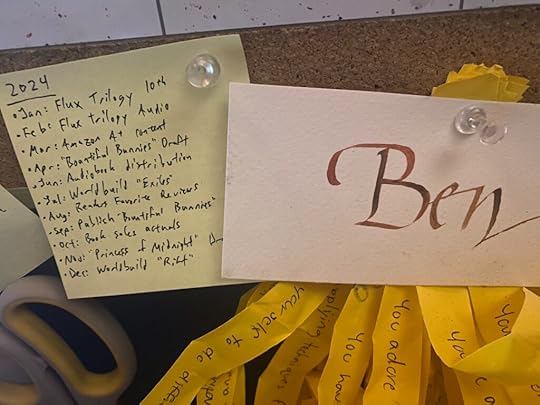 2024
• Jan: Flux Trilogy 10th
• Feb: Flux trilogy Audio
• Mar: Amazon A+ content
• Apr: "Bountiful Bunnies" Draft
• Jun: Audiobook distribution
• Jul: Worldbuild "Exiles"
• Aug: Readers Favorite Reviews
• Sep: Publish "Bountiful Bunnies"
• Oct: Book sales actuals
• Nov: "Princess of Midnight"
• Dec: Worldbuild "Rift"
Ben
your self to do
applying techniques
You have
You adore
You